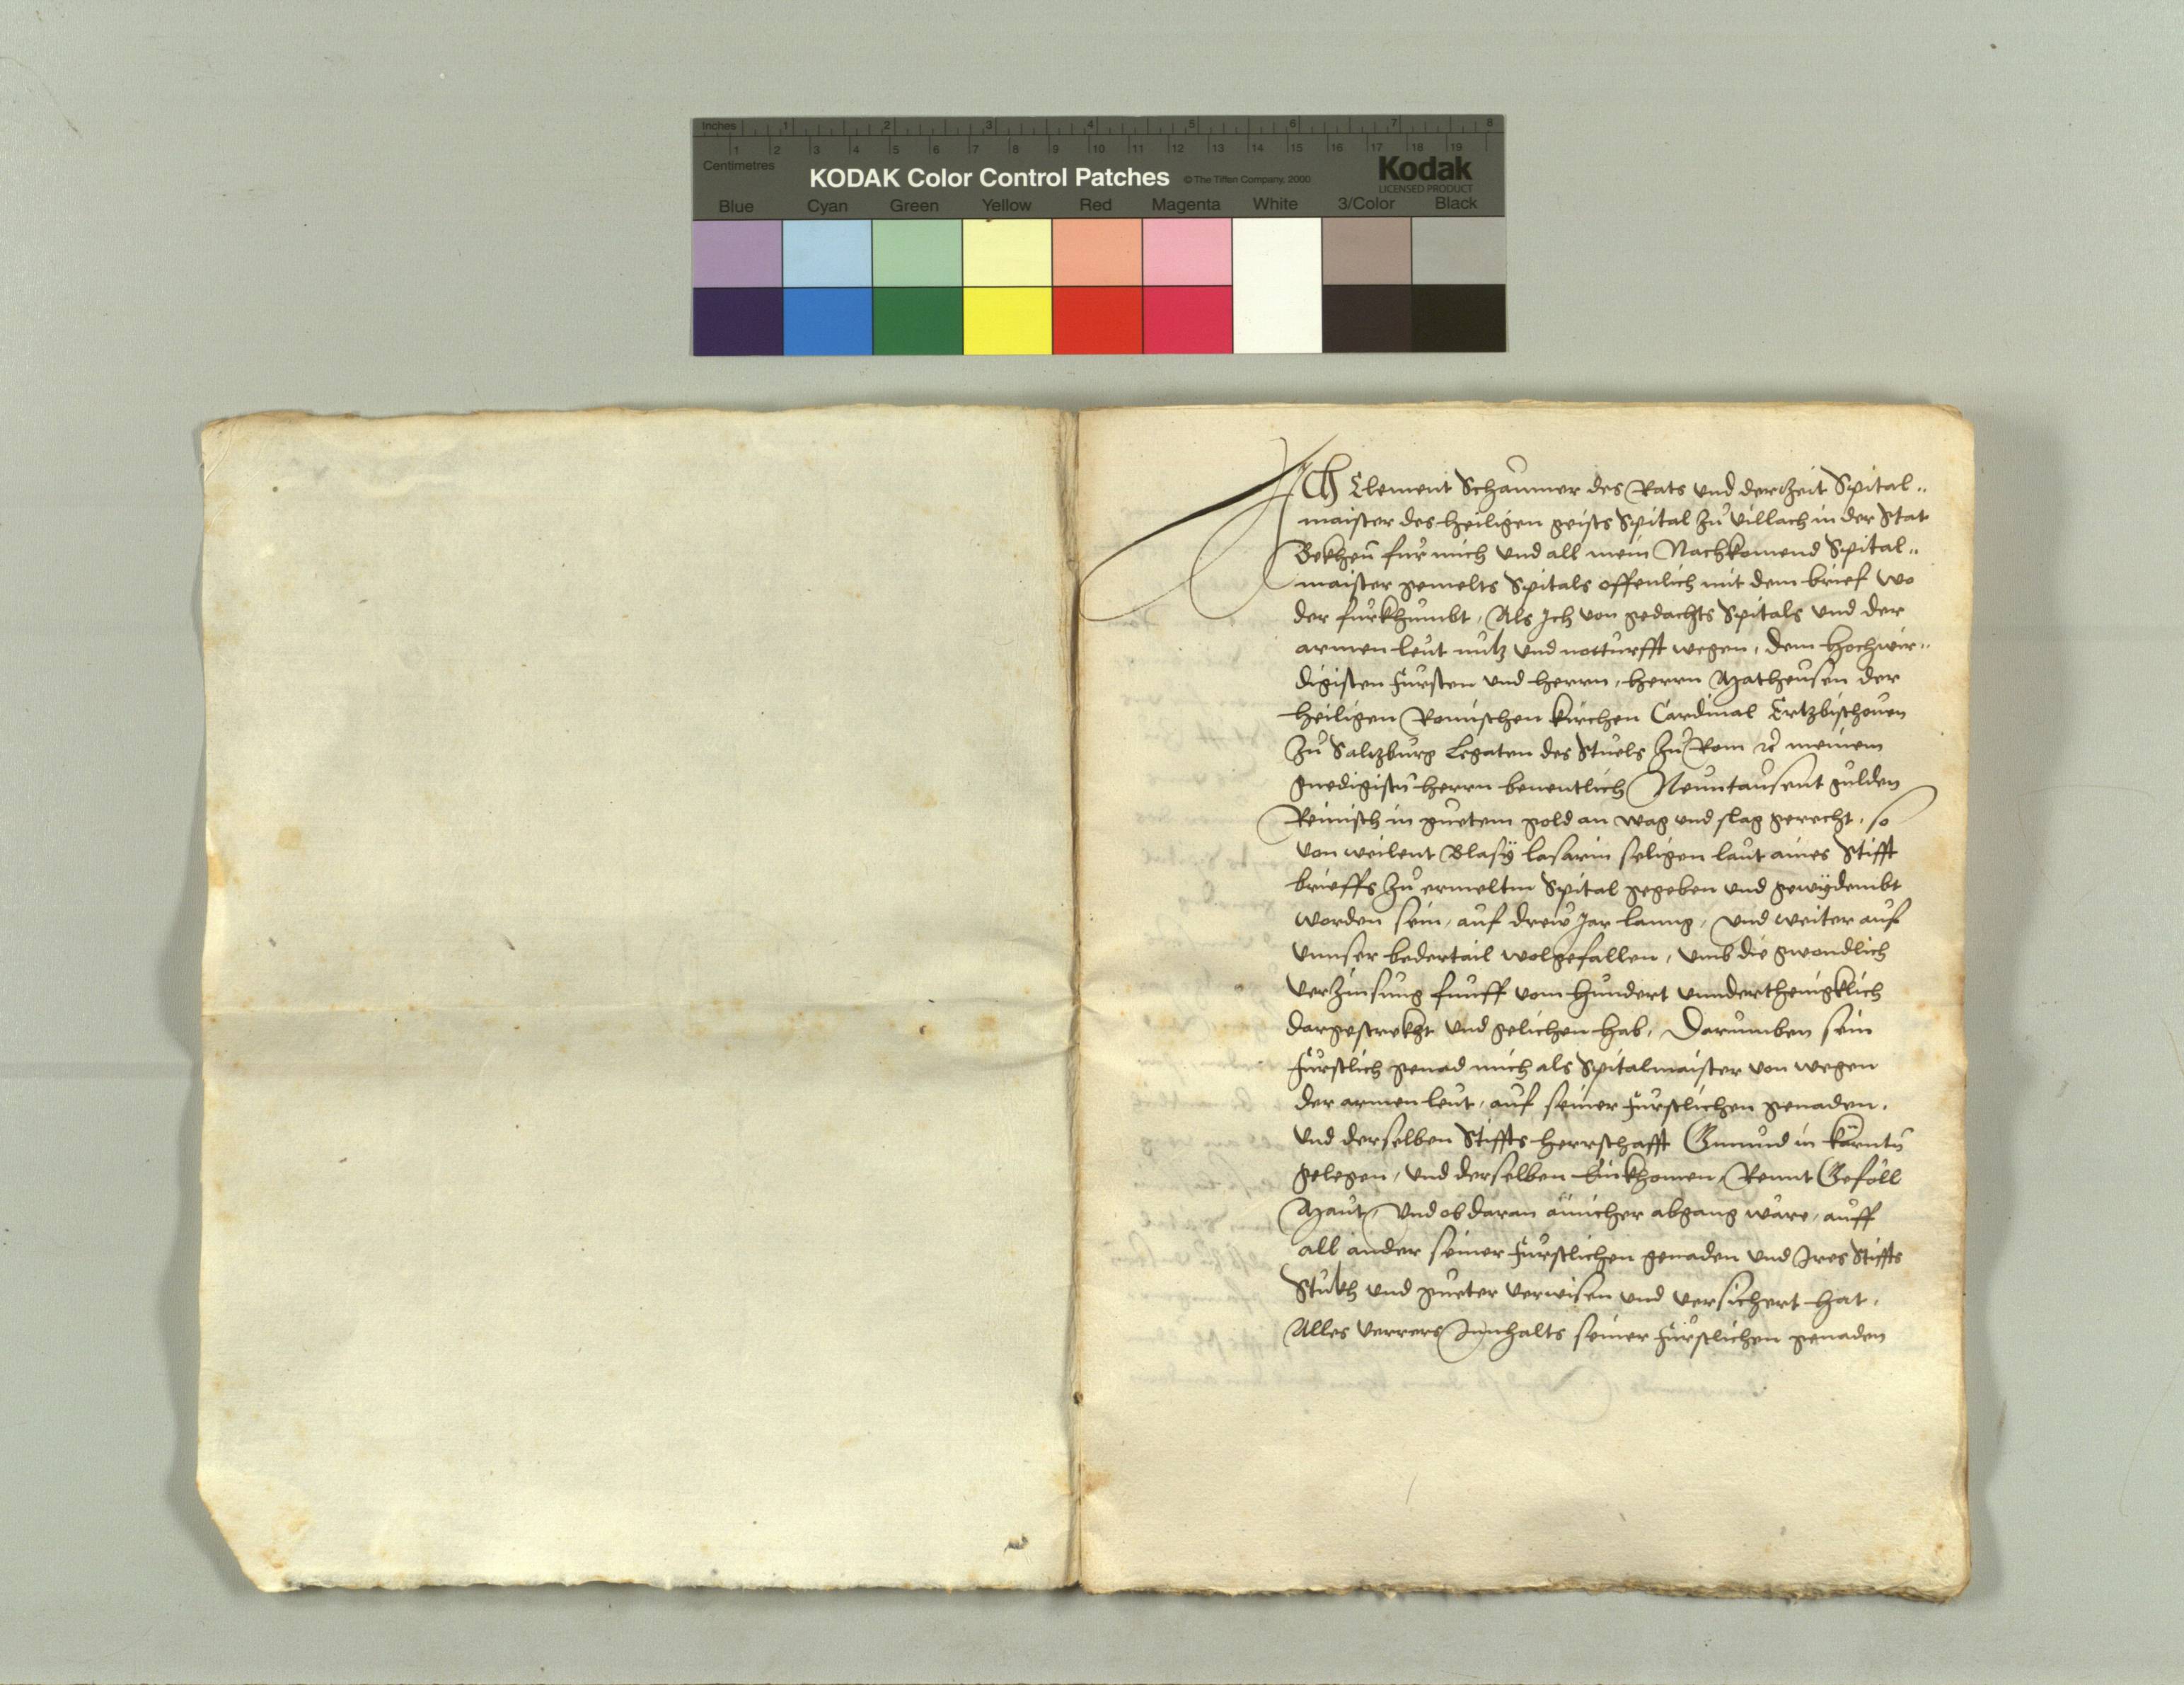 Inches 1 2 3 4 5 6 7 8
Centimetres 1 2 3 4 5 6 7 8 9 10 11 12 13 14 15 16 17 18 19
KODAK Color Control Patches © The Tiffen Company, 2000 Kodak
LICENSED PRODUCT
Blue Cyan Green Yellow Red Magenta White 3/Color Black
Ich Clement Schaumer des Rats und derzeit Spital„
maister des heiligen geists Spital zu villach in der Stat
Bekhen̄ fur mich und all mein Nachkomend Spital„
maister gemelts Spitals offenlich mit dem brief wo
der furkhumbt, Als Ich von gedachts Spitals und der
armen leut nutz und notturfft wegen, dem Hochwir„
digisten Fursten und herrn, herrn Matheusen der
heiligen Romischen kirchen Cardinal Ertzbischouen
zu Saltzburg Legaten des Stuels zu Rom meinem
gnedigistn̄ herrn benentlich Neuntausent gulden
Reinisch in guetem gold an wag und slag gerecht, so
von weilent Blasy lasarin seligen laut aines Stifft
brieffs zu ermeltm Spital gegeben und gewydembt
worden sein, auf drew Jar lanng, und weiter auf
unnser bedertail wolgefallen, umb die gwondlich
verzinsung funff vom hundert unnderthenigklich
dargestrekht und gelichen hab, Darumben sein
Furstlich genad mich als Spitalmaister von wegen
der armen leut, auf seiner Furstlichen genaden,
und derselben Stiffts herrschafft Gmund in kärntn̄
gelegen, und derselben Einkhomen, Rennt Gefäll
Maut, und ob daran ainicher abgang wäre, auff
all ander seiner Furstlichen genaden und Ires Stiffts
Stukh und gueter verwisen und versichert hat,
Alles verrers Innhalts seiner Furstlichen genaden